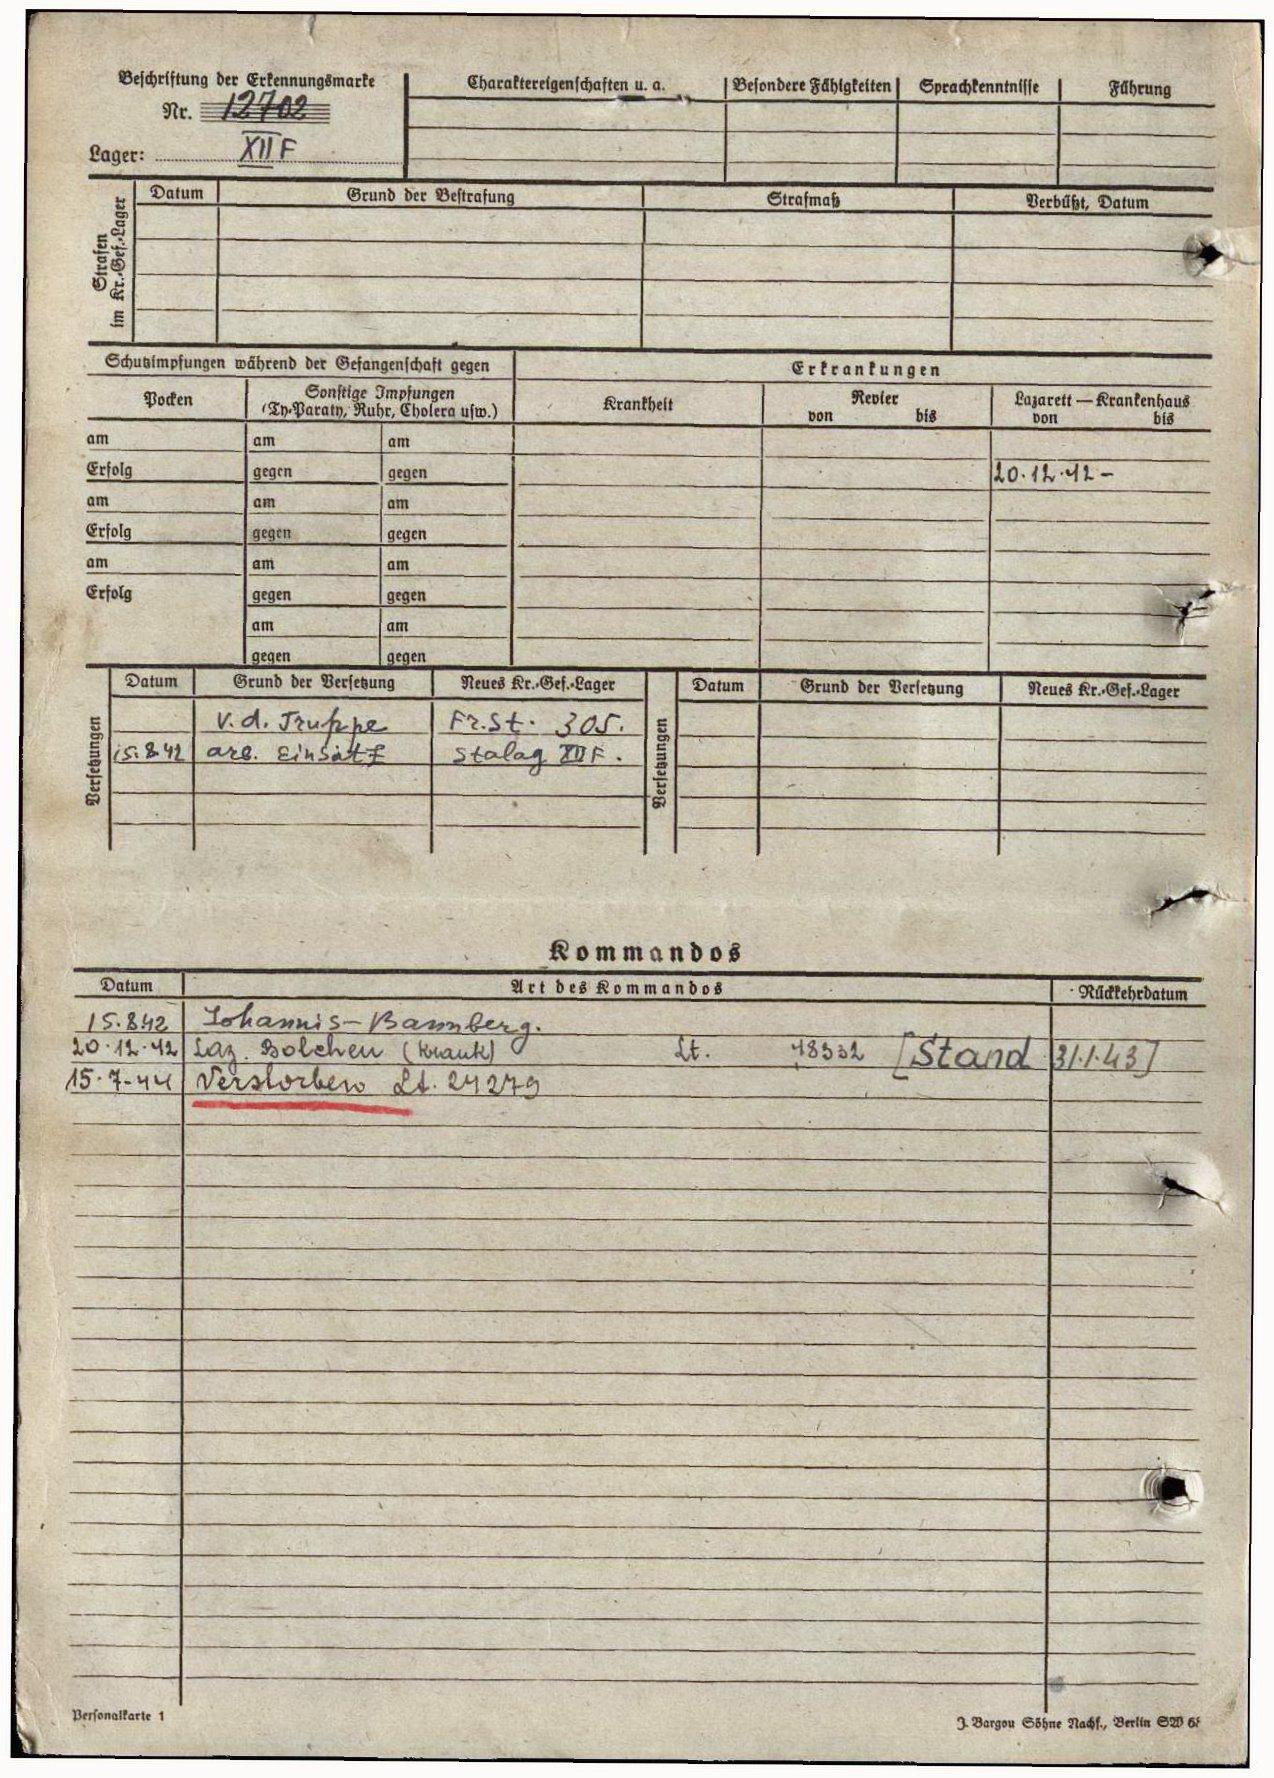 Beschriftung der Erkennungsmarke
Nr. 12702
Lager: XII F
Charaktereigenschaften u. a. Besondere Fähigkeiten Sprachkenntnisse Führung
Strafen im Kr.-Gef.-Lager
Datum Grund der Bestrafung Strafmaß Verbüßt, Datum
Schutzimpfungen während der Gefangenschaft gegen Erkrankungen
Pocken Sonstige Impfungen (Ty.-Paraty, Ruhr, Cholera usw.) Krankheit Revier von bis Lazarett — Krankenhaus von bis
am am am
Erfolg gegen gegen 20.12.42 –
am am am
Erfolg gegen gegen
am am am
Erfolg gegen gegen
am am
gegen gegen
Versetzungen
Datum Grund der Versetzung Neues Kr.-Gef.-Lager
V. d. Truppe Fr.St. 305.
15.8.42 arb. Einsatz Stalag XII F.
Versetzungen
Datum Grund der Versetzung Neues Kr.-Gef.-Lager
Kommandos
Datum Art des Kommandos Rückkehrdatum
15.8.42 Johannis-Bannberg.
20.12.42 Laz. Bolchen (Krank) Lt. 48332 [Stand 31.1.43]
15.7.44 Verstorben Lt. 27279
Personalkarte 1
J. Bargou Söhne Nachf., Berlin SW 68